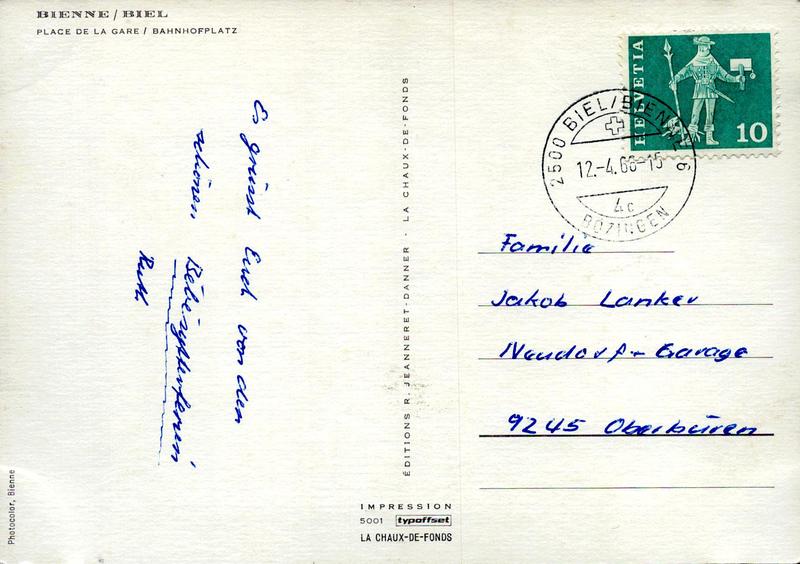 BIENNE / BIEL
PLACE DE LA GARE / BAHNHOFPLATZ
Es grüsst Euch von den
schönen
Ruth
Photocolor, Bienne
ÉDITIONS R. JEANNERET-DANNER · LA CHAUX-DE-FONDS
IMPRESSION
5001 typoffset
LA CHAUX-DE-FONDS
HELVETIA
10
2500 BIEL/BIENNE 6
12.-4.66-15
4c
BÖZINGEN
Familie
Jakob Lanker
Neudorf-Garage
9245 Oberbüren